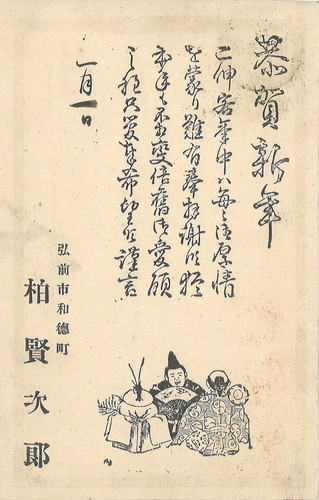 恭賀新年
二伸客年中ハ毎々御厚情
を蒙り難有奉拝謝候猶
本年も不相変倍旧御愛顧
之程只管奉希切望候謹言
一月一日
弘前市和徳町
柏賢次郎